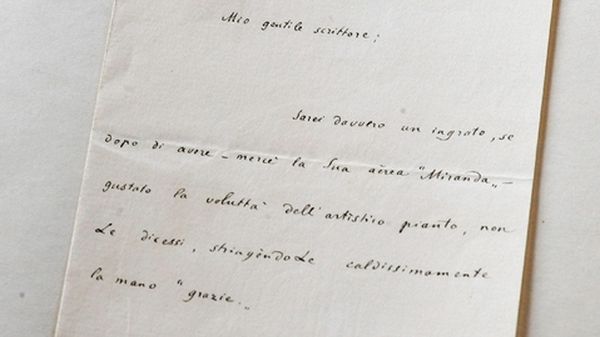 Mio gentile scrittore;
Sarei davvero un ingrato, se
dopo di avere – mercè la Sua aërea "Miranda„ –
gustato la voluttà dell'artistico pianto, non
Le dicessi, stringèndoLe caldissimamente
la mano "grazie.„